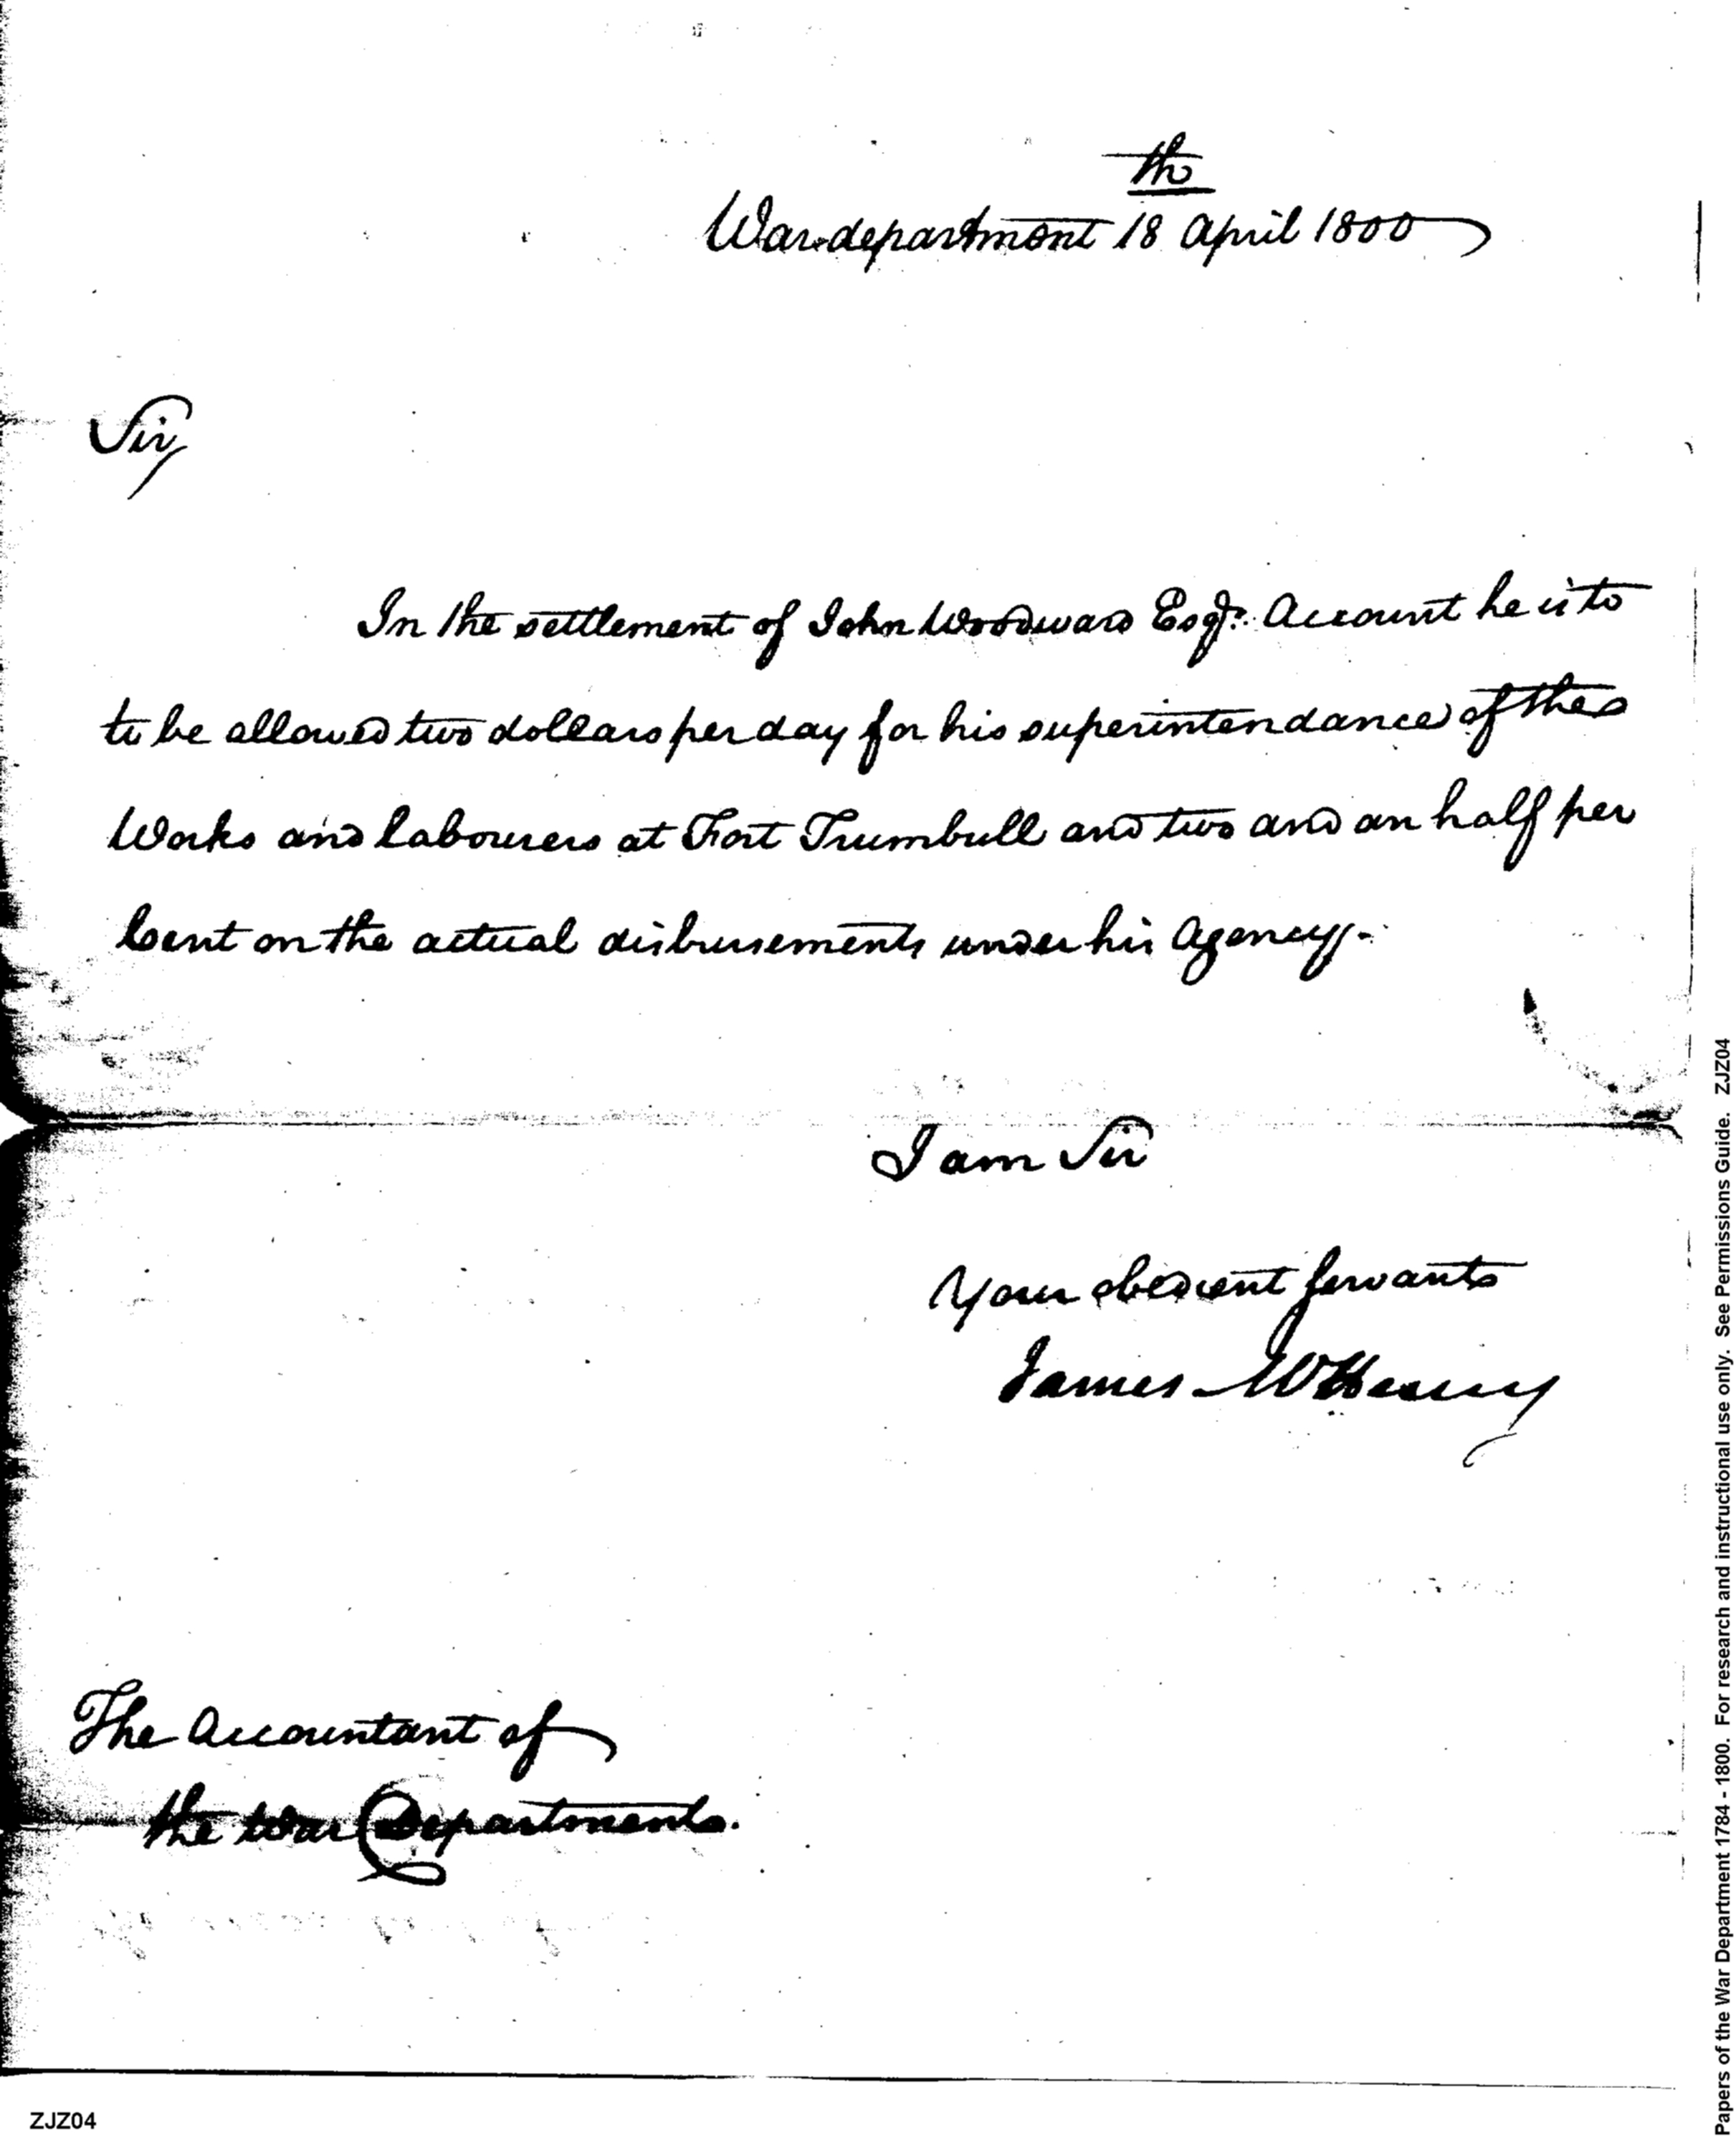 War department 18th April 1800
Sir,
In the settlement of John Woodward Esqr. Account he is to
to be allowed two dollars per day for his superintendance of the
Works and labourers at Fort Trumbull and two and an half per
Cent on the actual disbursements under his Agency.-
I am Sir
Your obedient servant
James McHenry
The Accountant of
the War Department.
Papers of the War Department 1784 - 1800. For research and instructional use only. See Permissions Guide. ZJZ04
ZJZ04